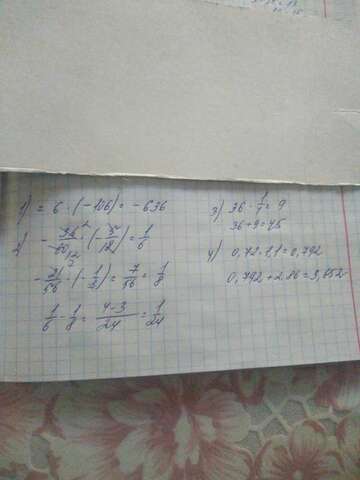 1) = 6 · (-106) = -636
2) - 36/60 · (- 5/18) = 1/6
- 21/56 · (- 1/3) = 7/56 = 1/8
1/6 - 1/8 = 4-3/24 = 1/24
3) 36 · 1/4 = 9
36+9=45
4) 0,72·1,1=0,792
0,792+2,86=3,652